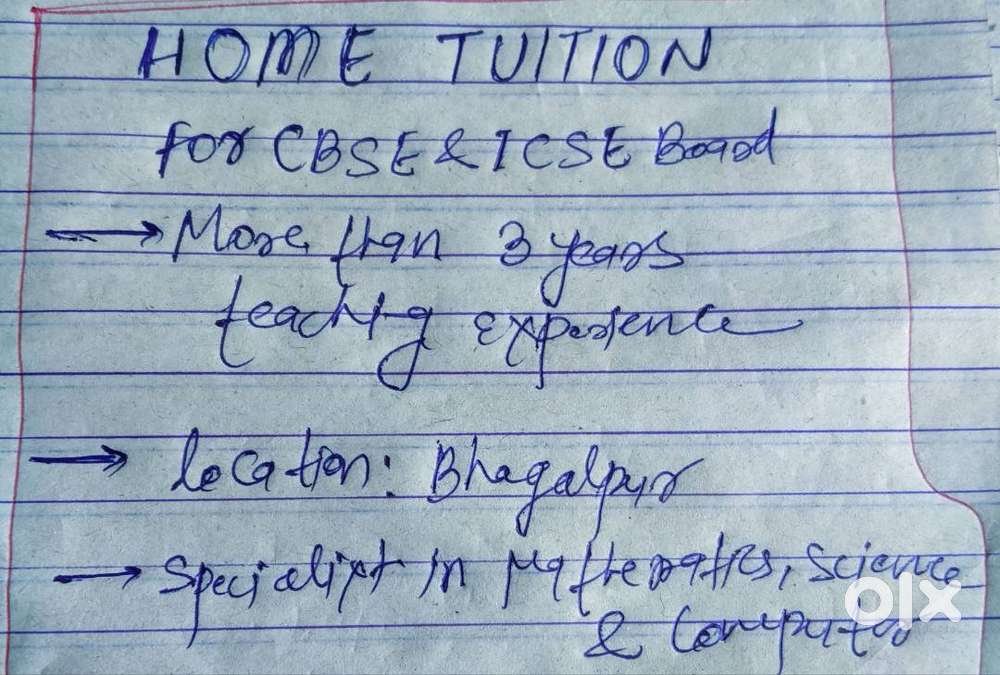 HOME TUITION
for CBSE & ICSE Board
→ More than 3 years
teaching experience
→ location: Bhagalpur
→ Specialist in Mathematics, Science
& Computer
olx